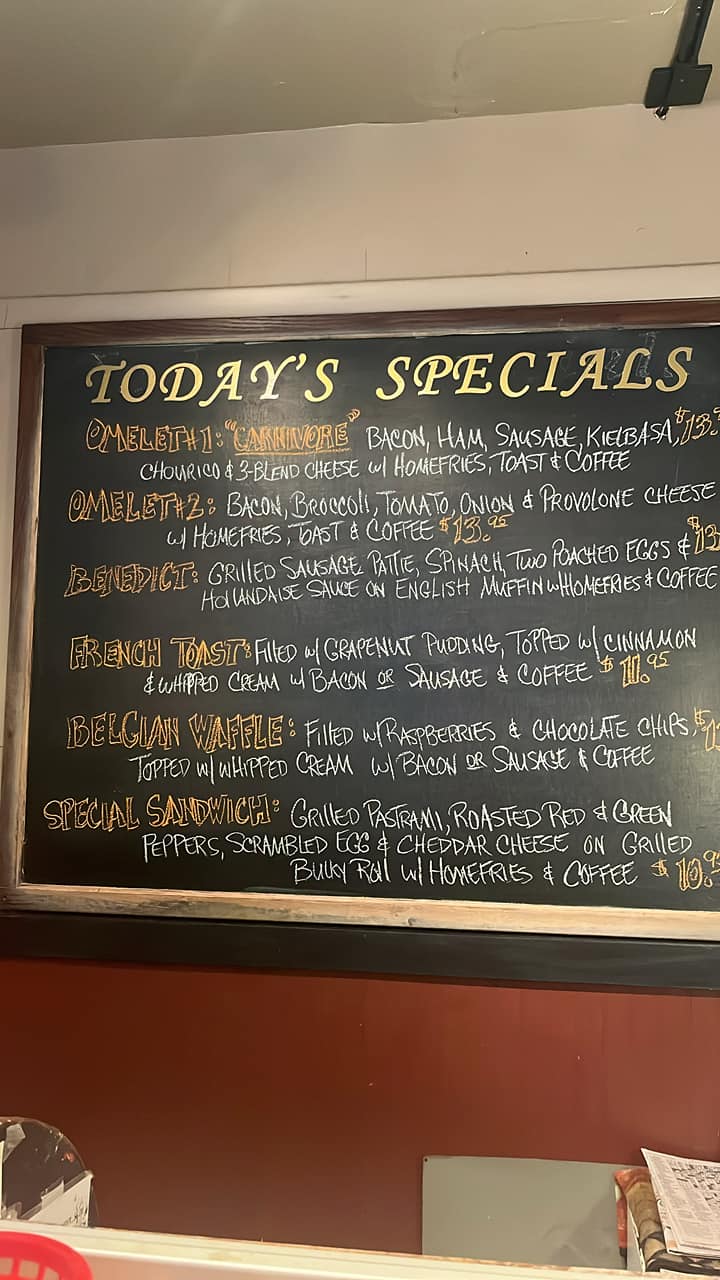 TODAY'S SPECIALS
OMELET#1: "CARNIVORE" BACON, HAM, SAUSAGE, KIELBASA, $13.
CHOURICO & 3-BLEND CHEESE w/ HOMEFRIES, TOAST & COFFEE
OMELET#2: BACON, BROCCOLI, TOMATO, ONION & PROVOLONE CHEESE
w/ HOMEFRIES, TOAST & COFFEE $13.95
BENEDICT: GRILLED SAUSAGE PATTIE, SPINACH, TWO POACHED EGGS & $13
HOLLANDAISE SAUCE ON ENGLISH MUFFIN w/HOMEFRIES & COFFEE
FRENCH TOAST: FILLED w/ GRAPENUT PUDDING, TOPPED w/ CINNAMON
& WHIPPED CREAM w/ BACON OR SAUSAGE & COFFEE $11.95
BELGIAN WAFFLE: FILLED w/RASPBERRIES & CHOCOLATE CHIPS, $1
TOPPED w/ WHIPPED CREAM w/ BACON OR SAUSAGE & COFFEE
SPECIAL SANDWICH: GRILLED PASTRAMI, ROASTED RED & GREEN
PEPPERS, SCRAMBLED EGG & CHEDDAR CHEESE ON GRILLED
BULKY ROLL w/ HOMEFRIES & COFFEE $10.9